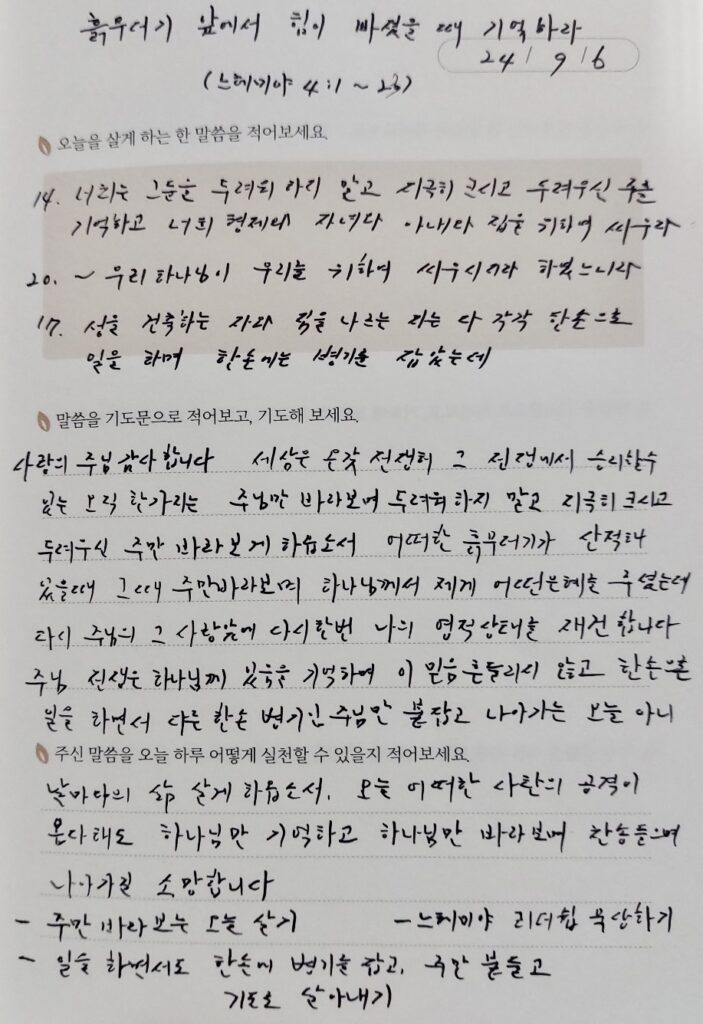 흙무더기 앞에서 힘이 빠졌을 때 기억하라
24/ 9/6
(느헤미야 4:1 ~ 23)
오늘을 살게 하는 한 말씀을 적어보세요.
14. 너희는 그들을 두려워하지 말고 지극히 크시고 두려우신 주를
기억하고 너희 형제와 자녀와 아내와 집을 위하여 싸우라
20. ~ 우리 하나님이 우리를 위하여 싸우시리라 하였느니라
17. 성을 건축하는 자와 짐을 나르는 자는 다 각각 한손으로
일을 하며 한손에는 병기를 잡았는데
말씀을 기도문으로 적어보고, 기도해 보세요.
사랑의 주님 감사합니다 세상은 온갖 전쟁터 그 전쟁에서 승리할수
있는 오직 한가지는 주님만 바라보며 두려워하지 말고 지극히 크시고
두려우신 주만 바라보게 하옵소서 어떠한 흙무더기가 산적해
있을때 그때 주만바라보며 하나님께서 제게 어떤은혜를 주셨는데
다시 주님의 그 사랑앞에 다시한번 나의 영적상태를 재건합니다
주님 전쟁은 하나님께 있음을 기억하여 이 믿음 흔들리지 않고 한손으론
일을 하면서 다른 한손 병기인 주님만 붙잡고 나아가는 오늘 아니
주신 말씀을 오늘 하루 어떻게 실천할 수 있을지 적어보세요.
날마다의 삶 살게 하옵소서. 오늘 어떠한 사탄의 공격이
온다해도 하나님만 기억하고 하나님만 바라보며 찬송들으며
나아가길 소망합니다
- 주만 바라보는 오늘 살기 - 느헤미야 리더쉽 묵상하기
- 일을 하면서도 한손에 병기을 잡고, 주만 붙들고
기도로 살아내기